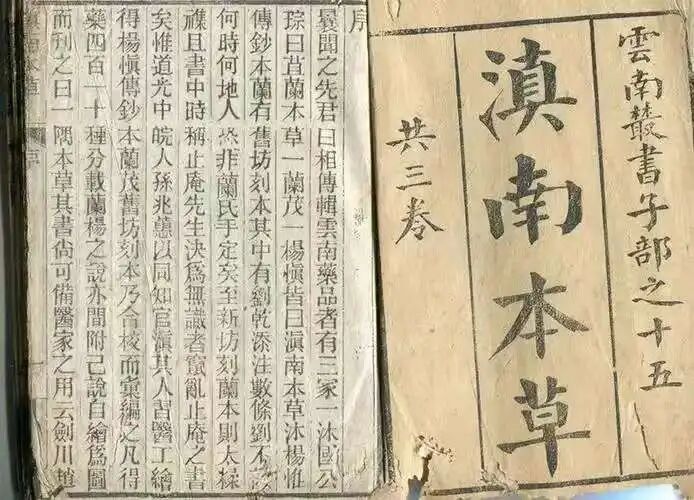 雲南叢書子部之十五
滇南本草
共三卷
序
曩聞之先君曰相傳輯雲南藥品者有三家一沐國公
琮曰苴蘭本草一蘭茂一楊慎皆曰滇南本草沐楊惟
傳鈔本蘭有舊坊刻本其中有劉乾添注數條劉不詳
何時何地人恐非蘭氏手定矣至新坊刻蘭本則太糅
襍且書中時稱止庵先生決爲無識者竄亂止庵之書
矣惟道光中皖人孫兆蕙以同知官滇其人習醫工繪
得楊慎傳鈔本蘭茂舊坊刻本乃合校而彙編之凡得
藥四百一十種分載蘭楊之說亦間附己說自繪爲圖
而刊之曰一隅本草其書尚可備醫家之用云劍川趙
滇南本草 序